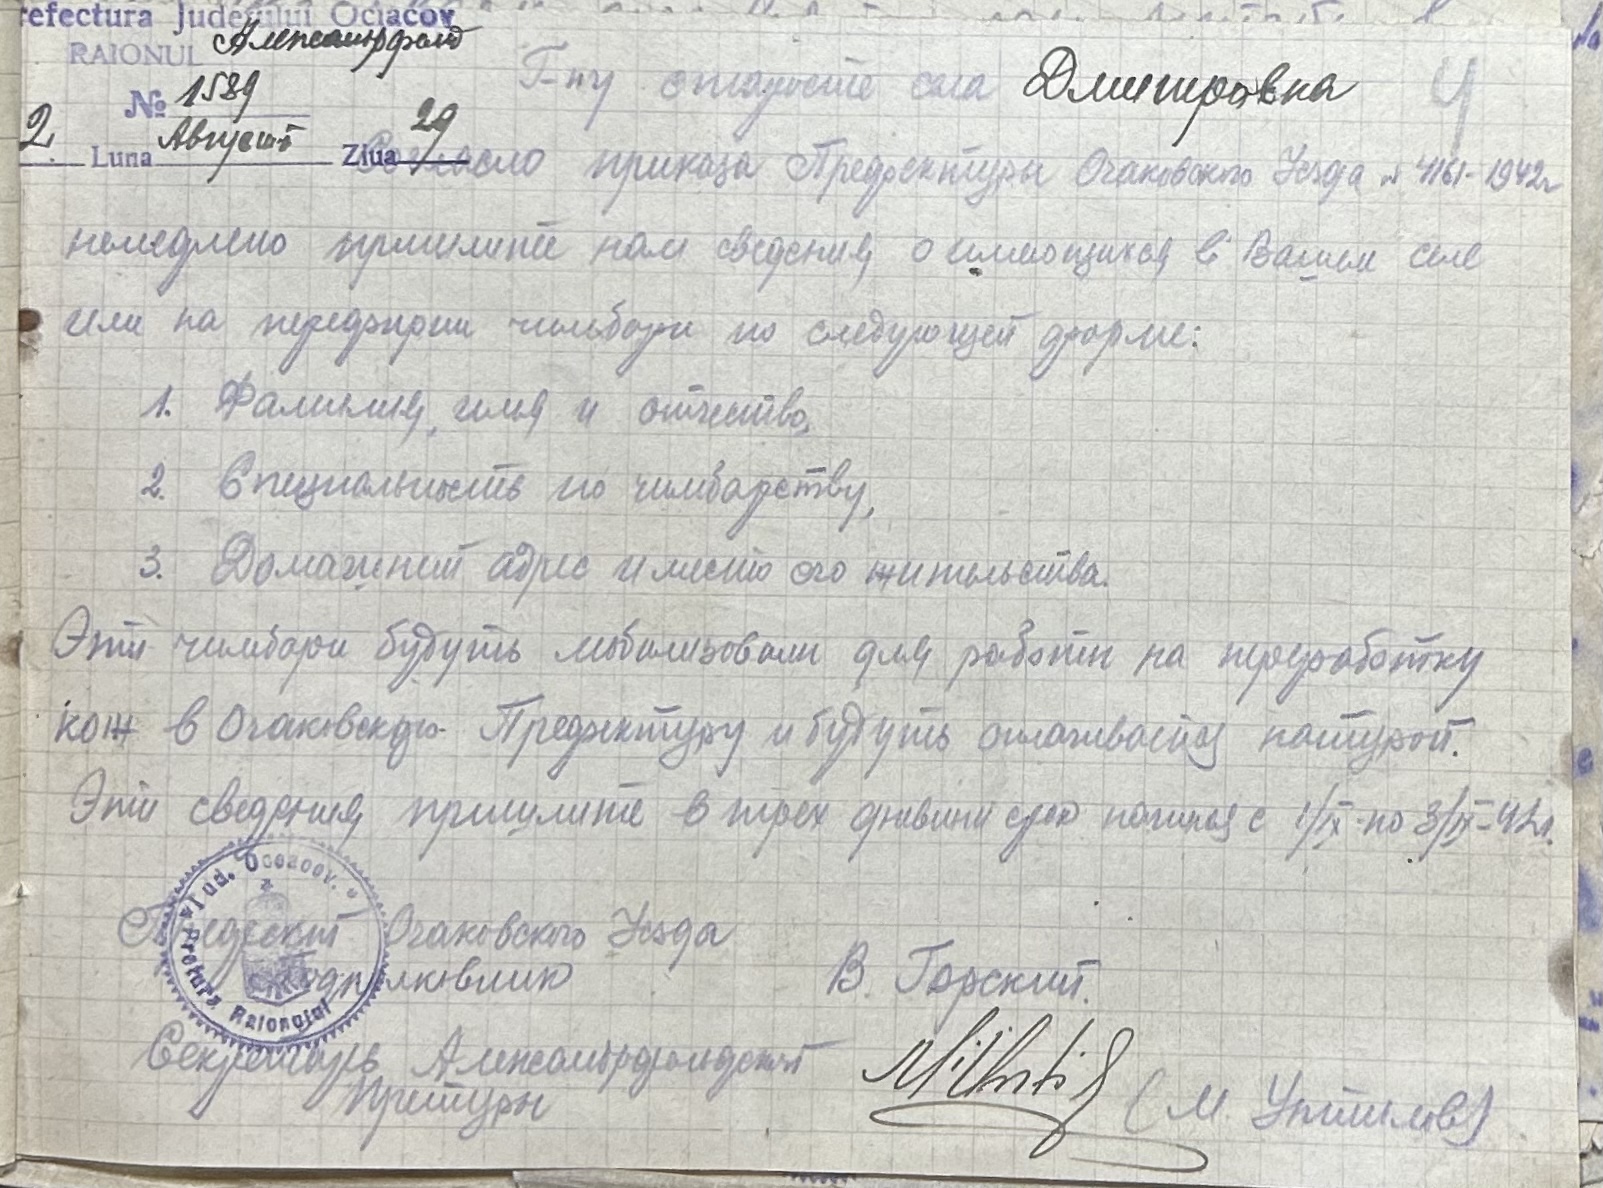 refectura Judeţului Ociacov
RAIONUL Александрфельд
№ 1589
2 Luna Август Ziua 29
Г-ну старосте села Дмитровка
4
Согласно приказа Префектуры Очаковского Уезда № 4161-1942г
немедлено пришлите нам сведения о имеющихся в Вашем селе
или на периферии чимбари по следующей форме:
1. Фамилия, имя и отчество,
2. Специальность по чимбарству,
3. Домашний адрес и место его жительства.
Эти чимбари будуть мобилизовани для работи на переработку
кож в Очаковскую Префектуру и будуть оплачиватся натурой.
Эти сведения пришлите в трех дневний срок начиная с 1/IX-по 3/IX-42г.
Префект Очаковского Уезда
Подполковник В. Горский.
Jud. Oceacov.
Pretura Raionului
Секретарь Александрфельдской
Претуры (М.